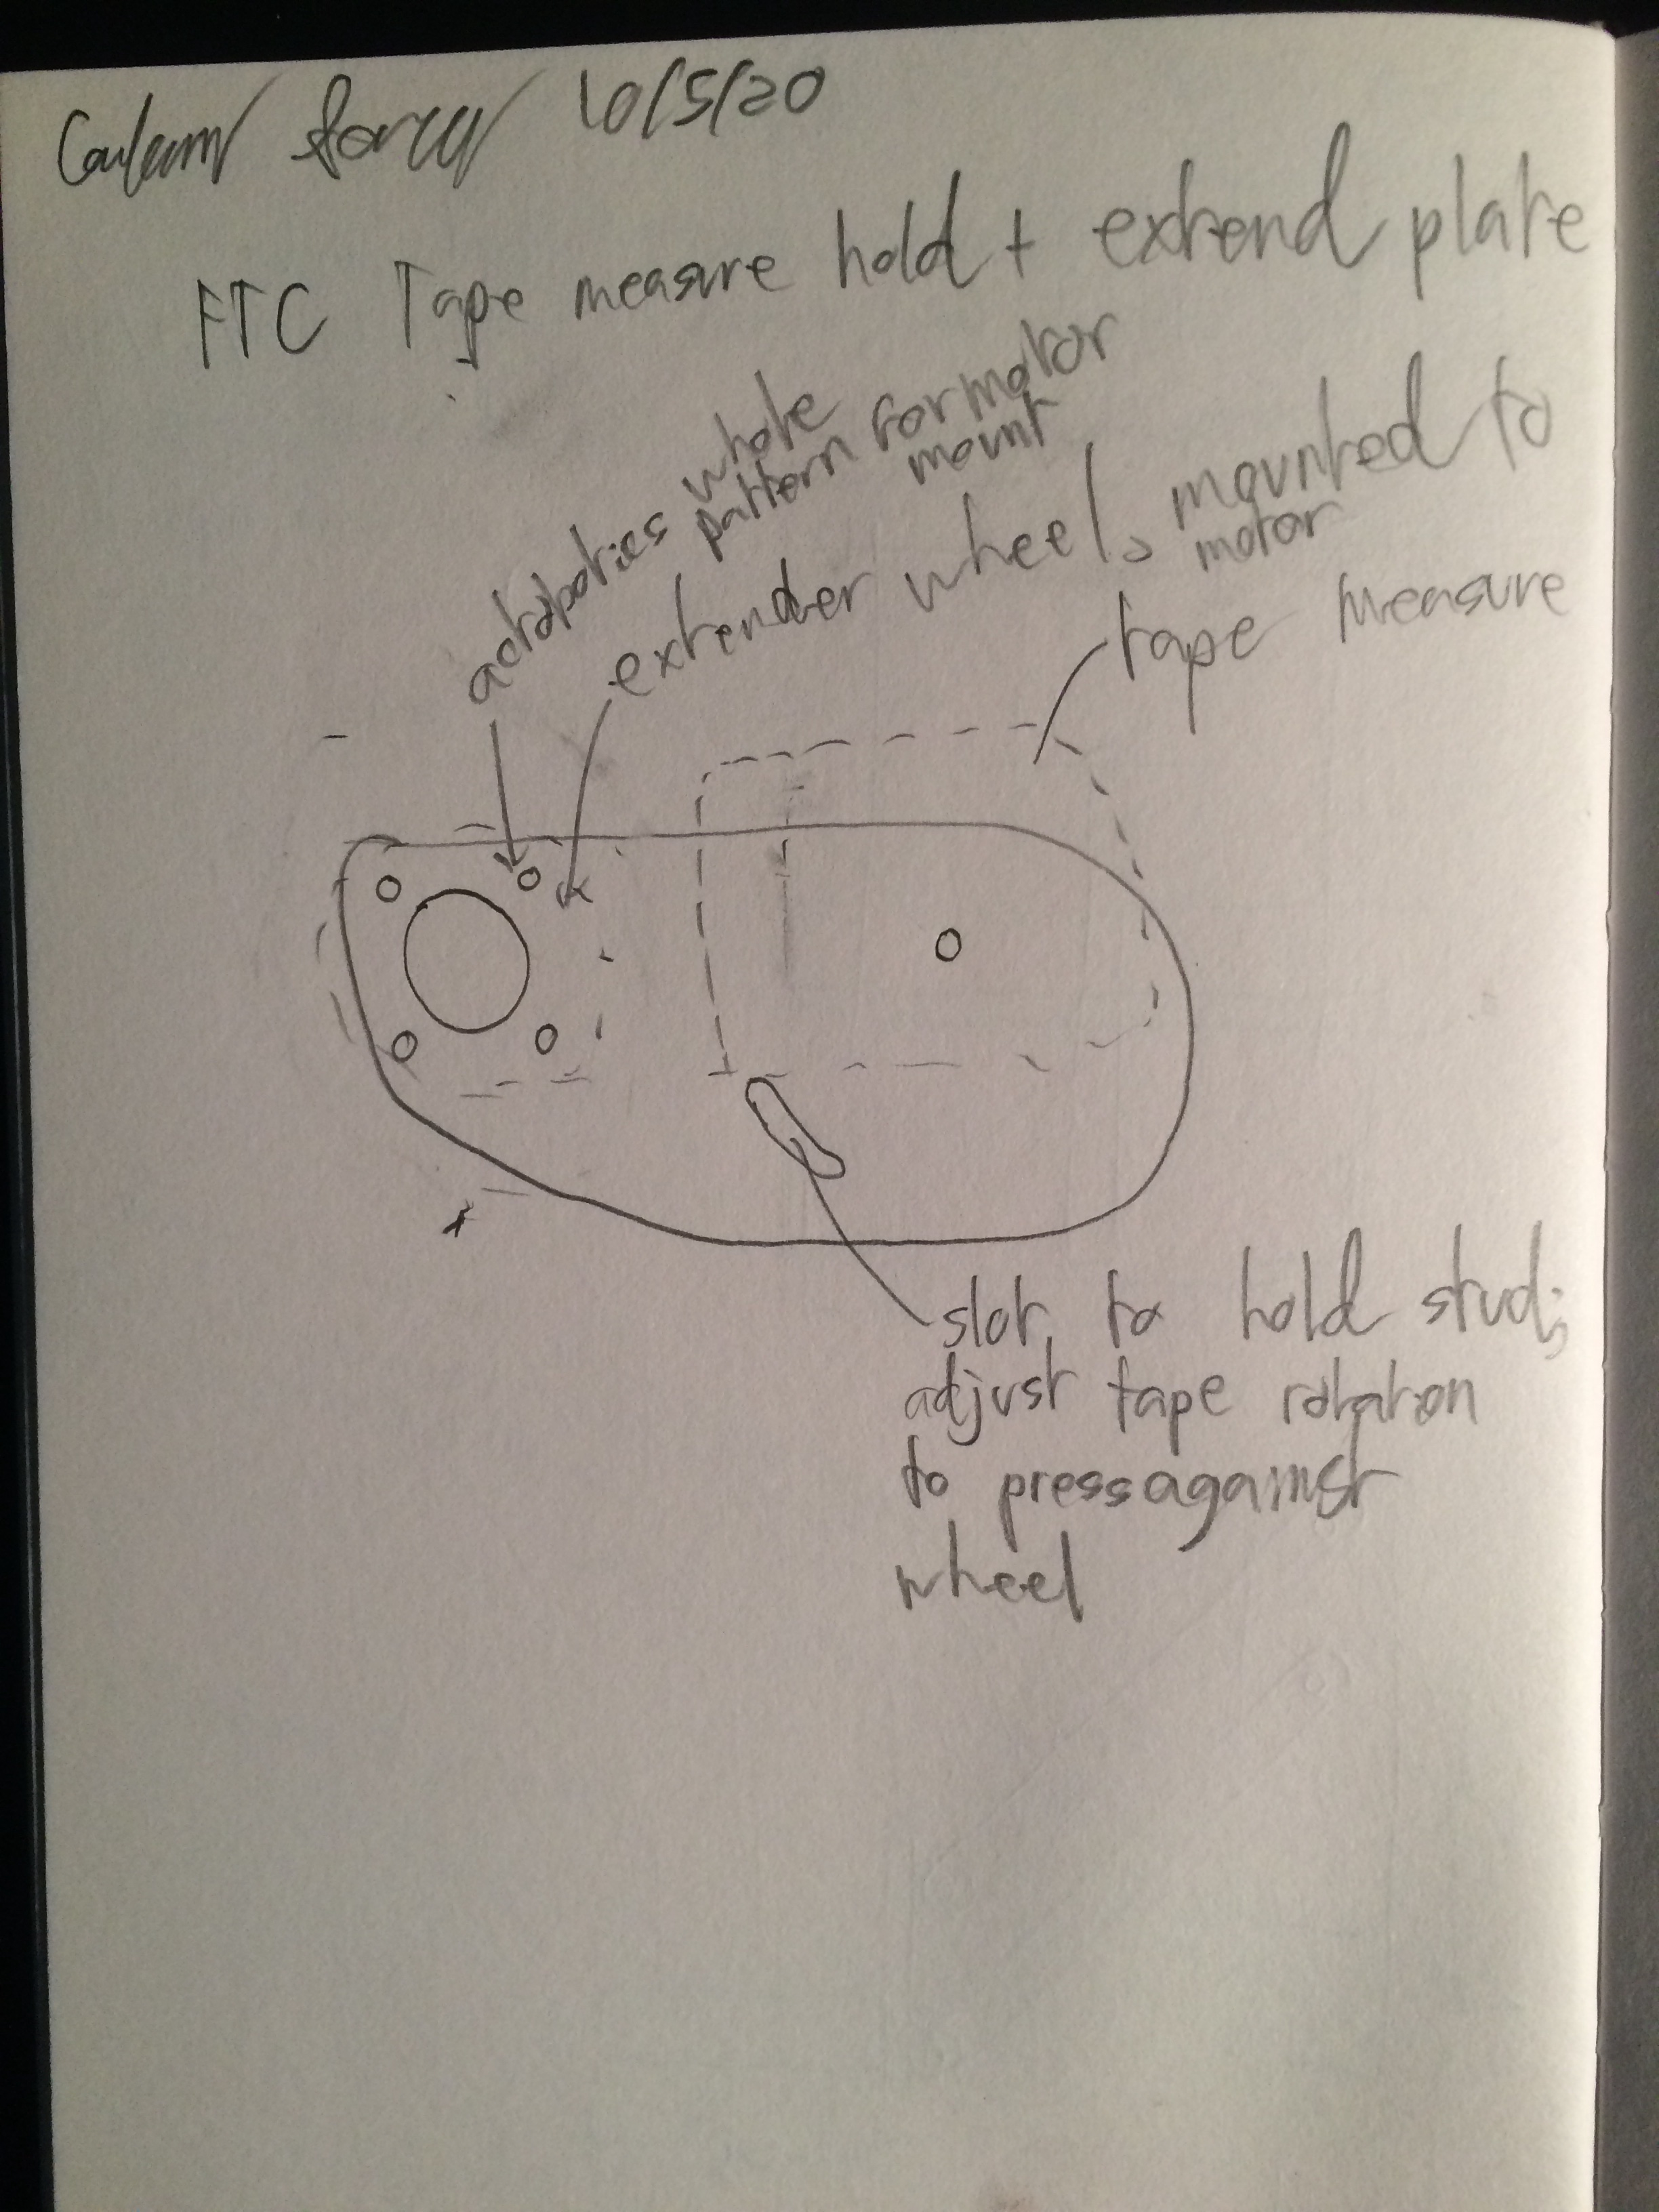 10/5/20
FTC Tape measure hold + extend plate
whole
pattern for motor
mount
extender wheel, mounted to
motor
tape measure
slot to hold stud;
adjust tape rotation
to press against
wheel